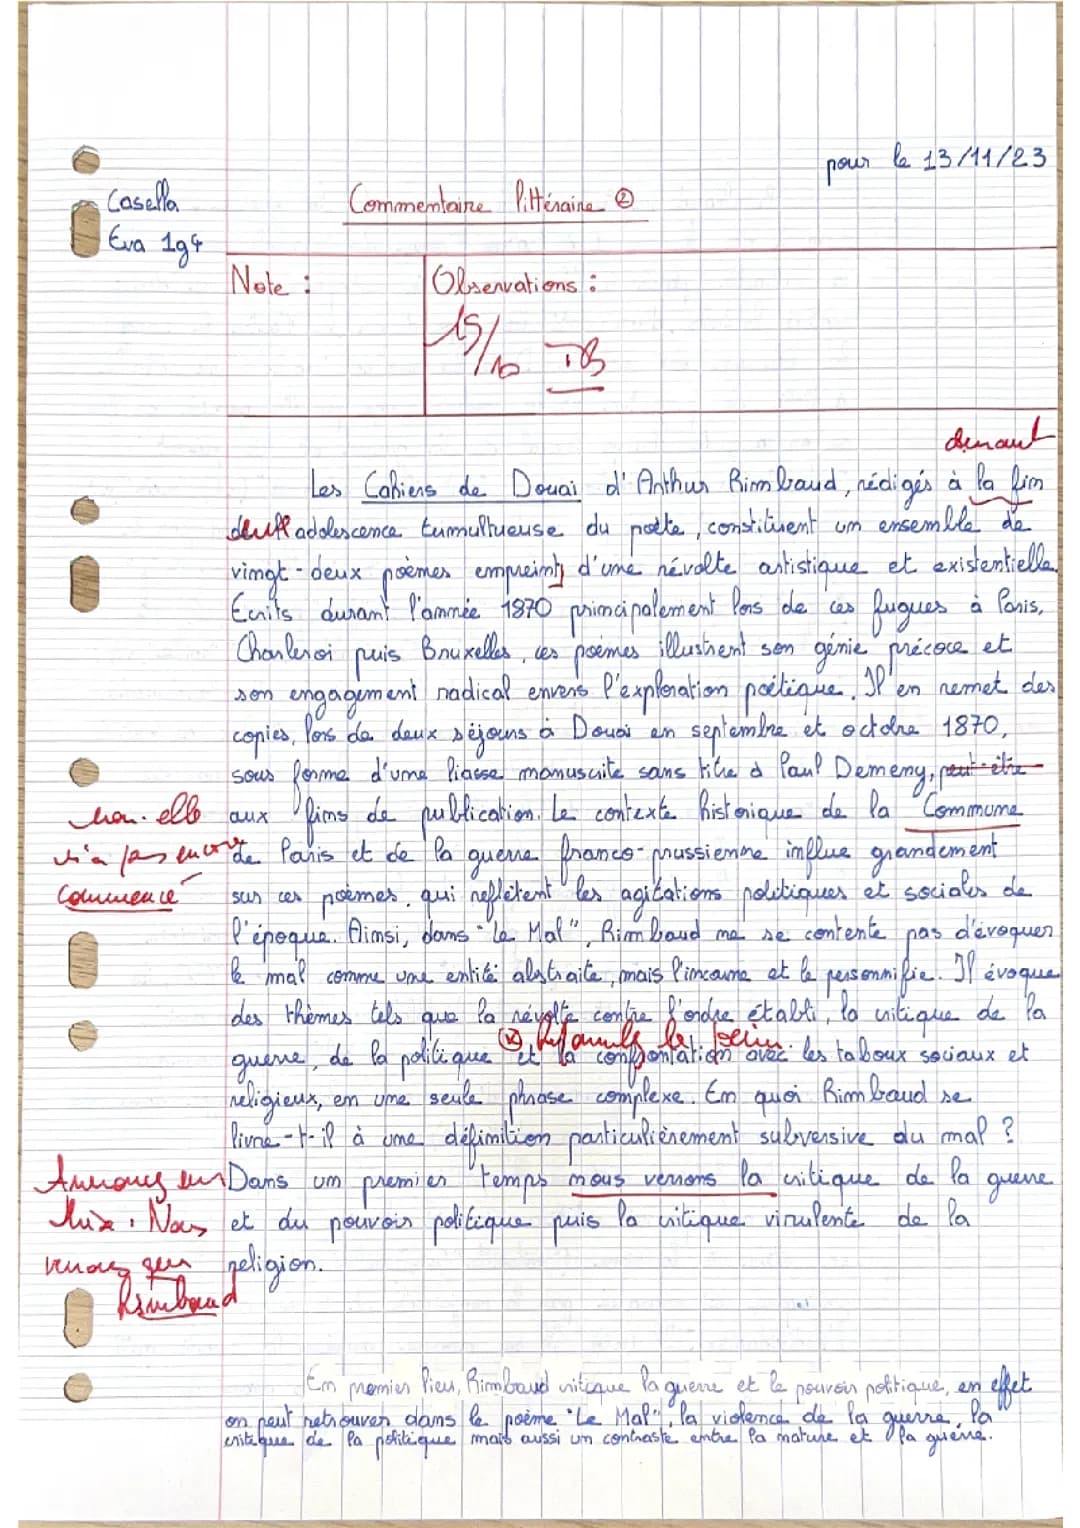 pour le 13/11/23
Casella
Eva 1g4
Commentaire littéraire ②
Note :
Observations :
15/10 TB
durant
Les Cahiers de Douai d'Arthur Rimbaud, rédigés à la fin
de l'adolescence tumultueuse du poète, constituent un ensemble de
vingt-deux poèmes empreints d'une révolte artistique et existentielle.
Ecrits durant l'année 1870 principalement lors de ces fugues à Paris,
Charleroi puis Bruxelles, ces poèmes illustrent son génie précoce et
son engagement radical envers l'exploration poétique. Il en remet des
copies, lors de deux séjours à Douai en septembre et octobre 1870,
sous forme d'une liasse manuscrite sans titre à Paul Demeny, peut-être
aux fins de publication. Le contexte historique de la Commune
non. elle
de Paris et de la guerre franco-prussienne influe grandement
n'a pas encore
sur ces poèmes, qui reflètent les agitations politiques et sociales de
commencé
l'époque. Ainsi, dans "Le Mal", Rimbaud ne se contente pas d'évoquer
le mal comme une entité abstraite, mais l'incarne et le personnifie. Il évoque
des thèmes tels que la révolte contre l'ordre établi, la critique de la
guerre, de la politique et la confrontation avec les taboux sociaux et
religieux, en une seule phrase complexe. En quoi Rimbaud se
livre-t-il à une définition particulièrement subversive du mal ?
Dans un premier temps nous verrons la critique de la guerre
et du pouvoir politique puis la critique virulente de la
religion.
Nous
verrons que
Rimbaud
En premier lieu, Rimbaud critique la guerre et le pouvoir politique, en effet
on peut retrouver dans le poème "Le Mal", la violence de la guerre, la
critique de la politique mais aussi un contraste entre la nature et la guerre.